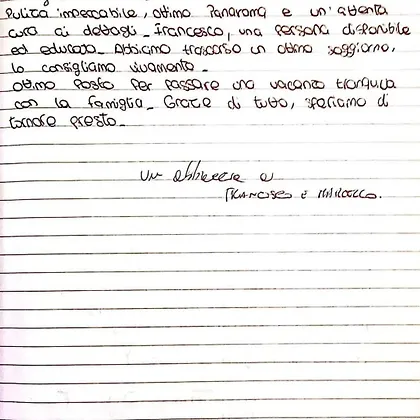 Pulizia impeccabile, ottimo panorama e un'attenta
cura ai dettagli - Francesco, una persona disponibile
ed educata - Abbiamo trascorso un ottimo soggiorno,
lo consigliamo vivamente -
Ottimo posto per passare una vacanza tranquilla
con la famiglia - Grazie di tutto, speriamo di
tornare presto -
Un abbraccio a
Francesco e